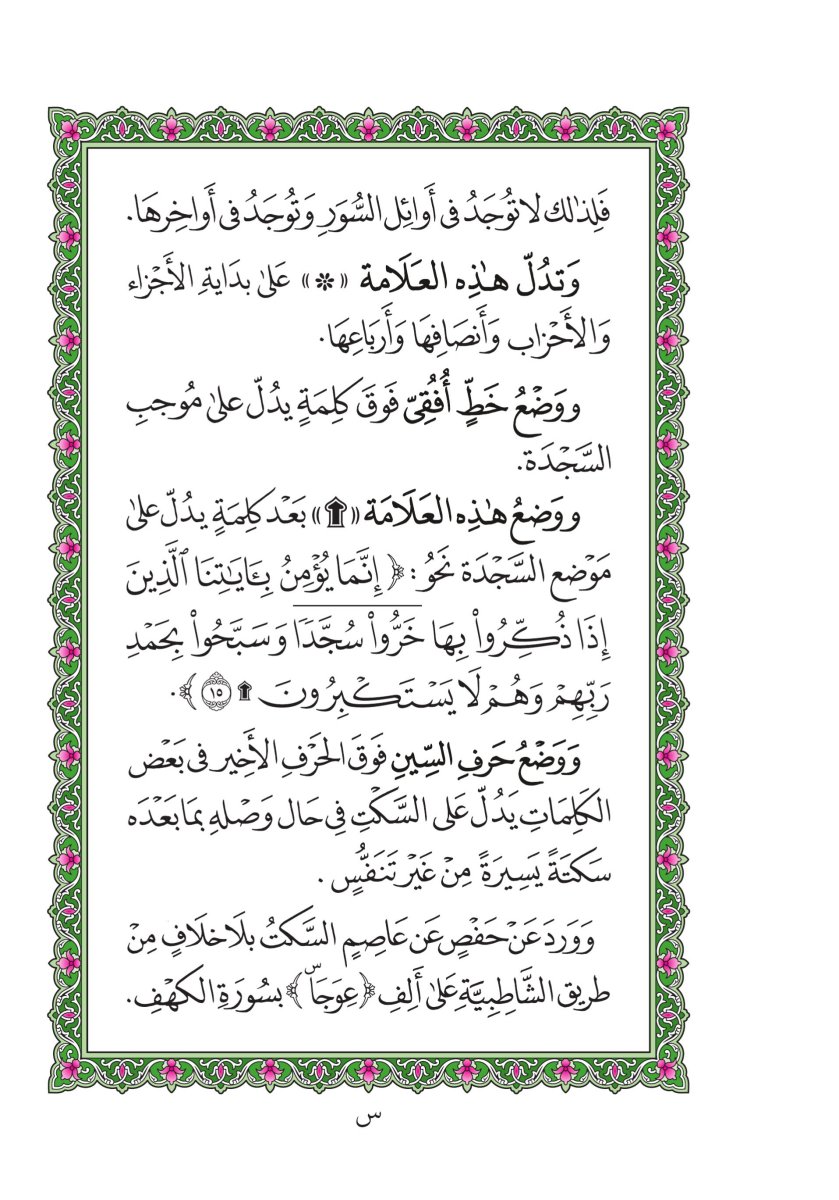 فَلِذَٰلك لا تُوجَدُ فى أَوائِل السُّوَرِ وَتُوجَدُ فى أَواخِرِهَا.
وَتدُلّ هٰذِه العَلَامة «❊» عَلىٰ بدَايةِ الأَجْزاء
وَالأَحْزاب وَأَنصَافِهَا وَأَربَاعِهَا.
ووَضْعُ خَطٍّ أُفُقِىّ فَوقَ كَلِمَةٍ يدُلّ علىٰ مُوجبِ
السَّجْدَة.
ووَضعُ هٰذِه العَلَامَة «۩» بَعْد كلِمَةٍ يدُلّ علىٰ
مَوْضع السَّجْدَة نَحوُ: ﴿إِنَّمَا يُؤْمِنُ بِـَٔايَـٰتِنَا ٱلَّذِينَ
إِذَا ذُكِّرُوا۟ بِهَا خَرُّوا۟ سُجَّدًا وَسَبَّحُوا۟ بِحَمْدِ
رَبِّهِمْ وَهُمْ لَا يَسْتَكْبِرُونَ ۩ ١٥﴾.
وَوَضْعُ حَرفِ السِّينِ فَوقَ الحَرْفِ الأَخِير فى بَعْض
الكَلِمَاتِ يَدُلّ عَلى السَّكْتِ فِى حَال وَصْلهِ بمَا بَعْدَه
سَكتَةً يَسِيرَةً مِنْ غَيْر تَنَفُّسٍ.
وَوَردَ عَنْ حَفْصٍ عَن عَاصِمٍ السَّكتُ بلَا خلَافٍ مِنْ
طريق الشَّاطِبِيَّةِ عَلىٰ أَلِفِ ﴿عِوَجَاۜ﴾ بسُورَةِ الكَهْفِ.
س